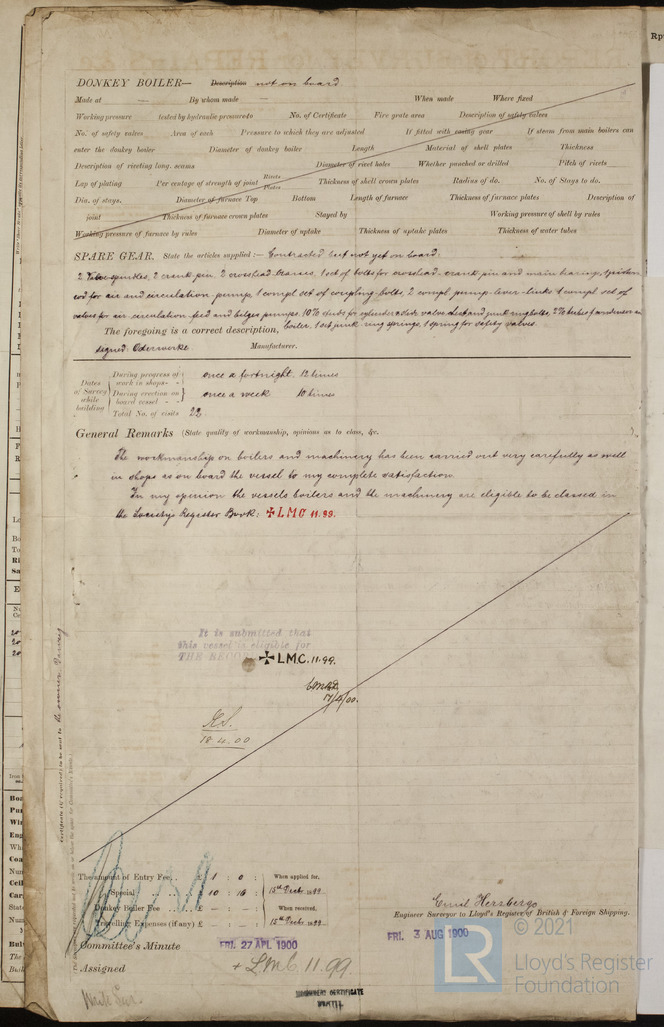 DONKEY BOILER— Description not on board
Made at — By whom made — When made Where fixed
Working pressure tested by hydraulic pressure to No. of Certificate Fire grate area Description of safety valves
No. of safety valves Area of each Pressure to which they are adjusted If fitted with easing gear If steam from main boilers can
enter the donkey boiler Diameter of donkey boiler Length Material of shell plates Thickness
Description of riveting long. seams Diameter of rivet holes Whether punched or drilled Pitch of rivets
Lap of plating Per centage of strength of joint Rivets Plates Thickness of shell crown plates Radius of do. No. of Stays to do.
Dia. of stays. Diameter of furnace Top Bottom Length of furnace Thickness of furnace plates Description of
joint Thickness of furnace crown plates Stayed by Working pressure of shell by rules
Working pressure of furnace by rules Diameter of uptake Thickness of uptake plates Thickness of water tubes
SPARE GEAR. State the articles supplied:— Contracted but not yet on board:
2 Valve spindles, 2 crank pin, 2 crosshead brasses, 1 set of bolts for crosshead, crank pin and main bearing, 1 piston
rod for air and circulation pump, 1 compl set of coupling bolts, 2 compl pump-lever-links, 1 compl set of
valves for air, circulation, feed and bilge pumps, 10% studs for cylinder slide valve chest and junk ring bolts, 2% tubes f condenser
boiler, 1 set junk ring springs, 1 spring for safety valves.
The foregoing is a correct description,
signed: Oderwerke. Manufacturer.
Dates of Survey while building
During progress of work in shops - - once a fortnight. 12 times
During erection on board vessel - - once a week 10 times
Total No. of visits 22
General Remarks (State quality of workmanship, opinions as to class, &c.
The workmanship on boilers and machinery has been carried out very carefully as well
in shops as on board the vessel to my complete satisfaction.
In my opinion the vessels boilers and the machinery are eligible to be classed in
the Society's Register Book: ✠ L M C 11.99.
It is submitted that
this vessel is eligible for
THE RECORD ✠ L.M.C. 11.99.
17/4/00.
18.4.00
Certificate (if required) to be sent to the
The amount of Entry Fee. . £ 1 : 0 : When applied for,
Special . . . . £ 10 : 16 : 15th Decbr 1899
Donkey Boiler Fee . . . £ — : — : When received,
Travelling Expenses (if any) £ — : — : 15th Decbr 1899
Emil Herzberg
Engineer Surveyor to Lloyd's Register of British & Foreign Shipping.
Committee's Minute FRI. 27 APL 1900 FRI. 3 AUG 1900
Assigned + L.M.C. 11.99
MACHINERY CERTIFICATE
WRITTEN.
LR
© 2021
Lloyd's Register
Foundation